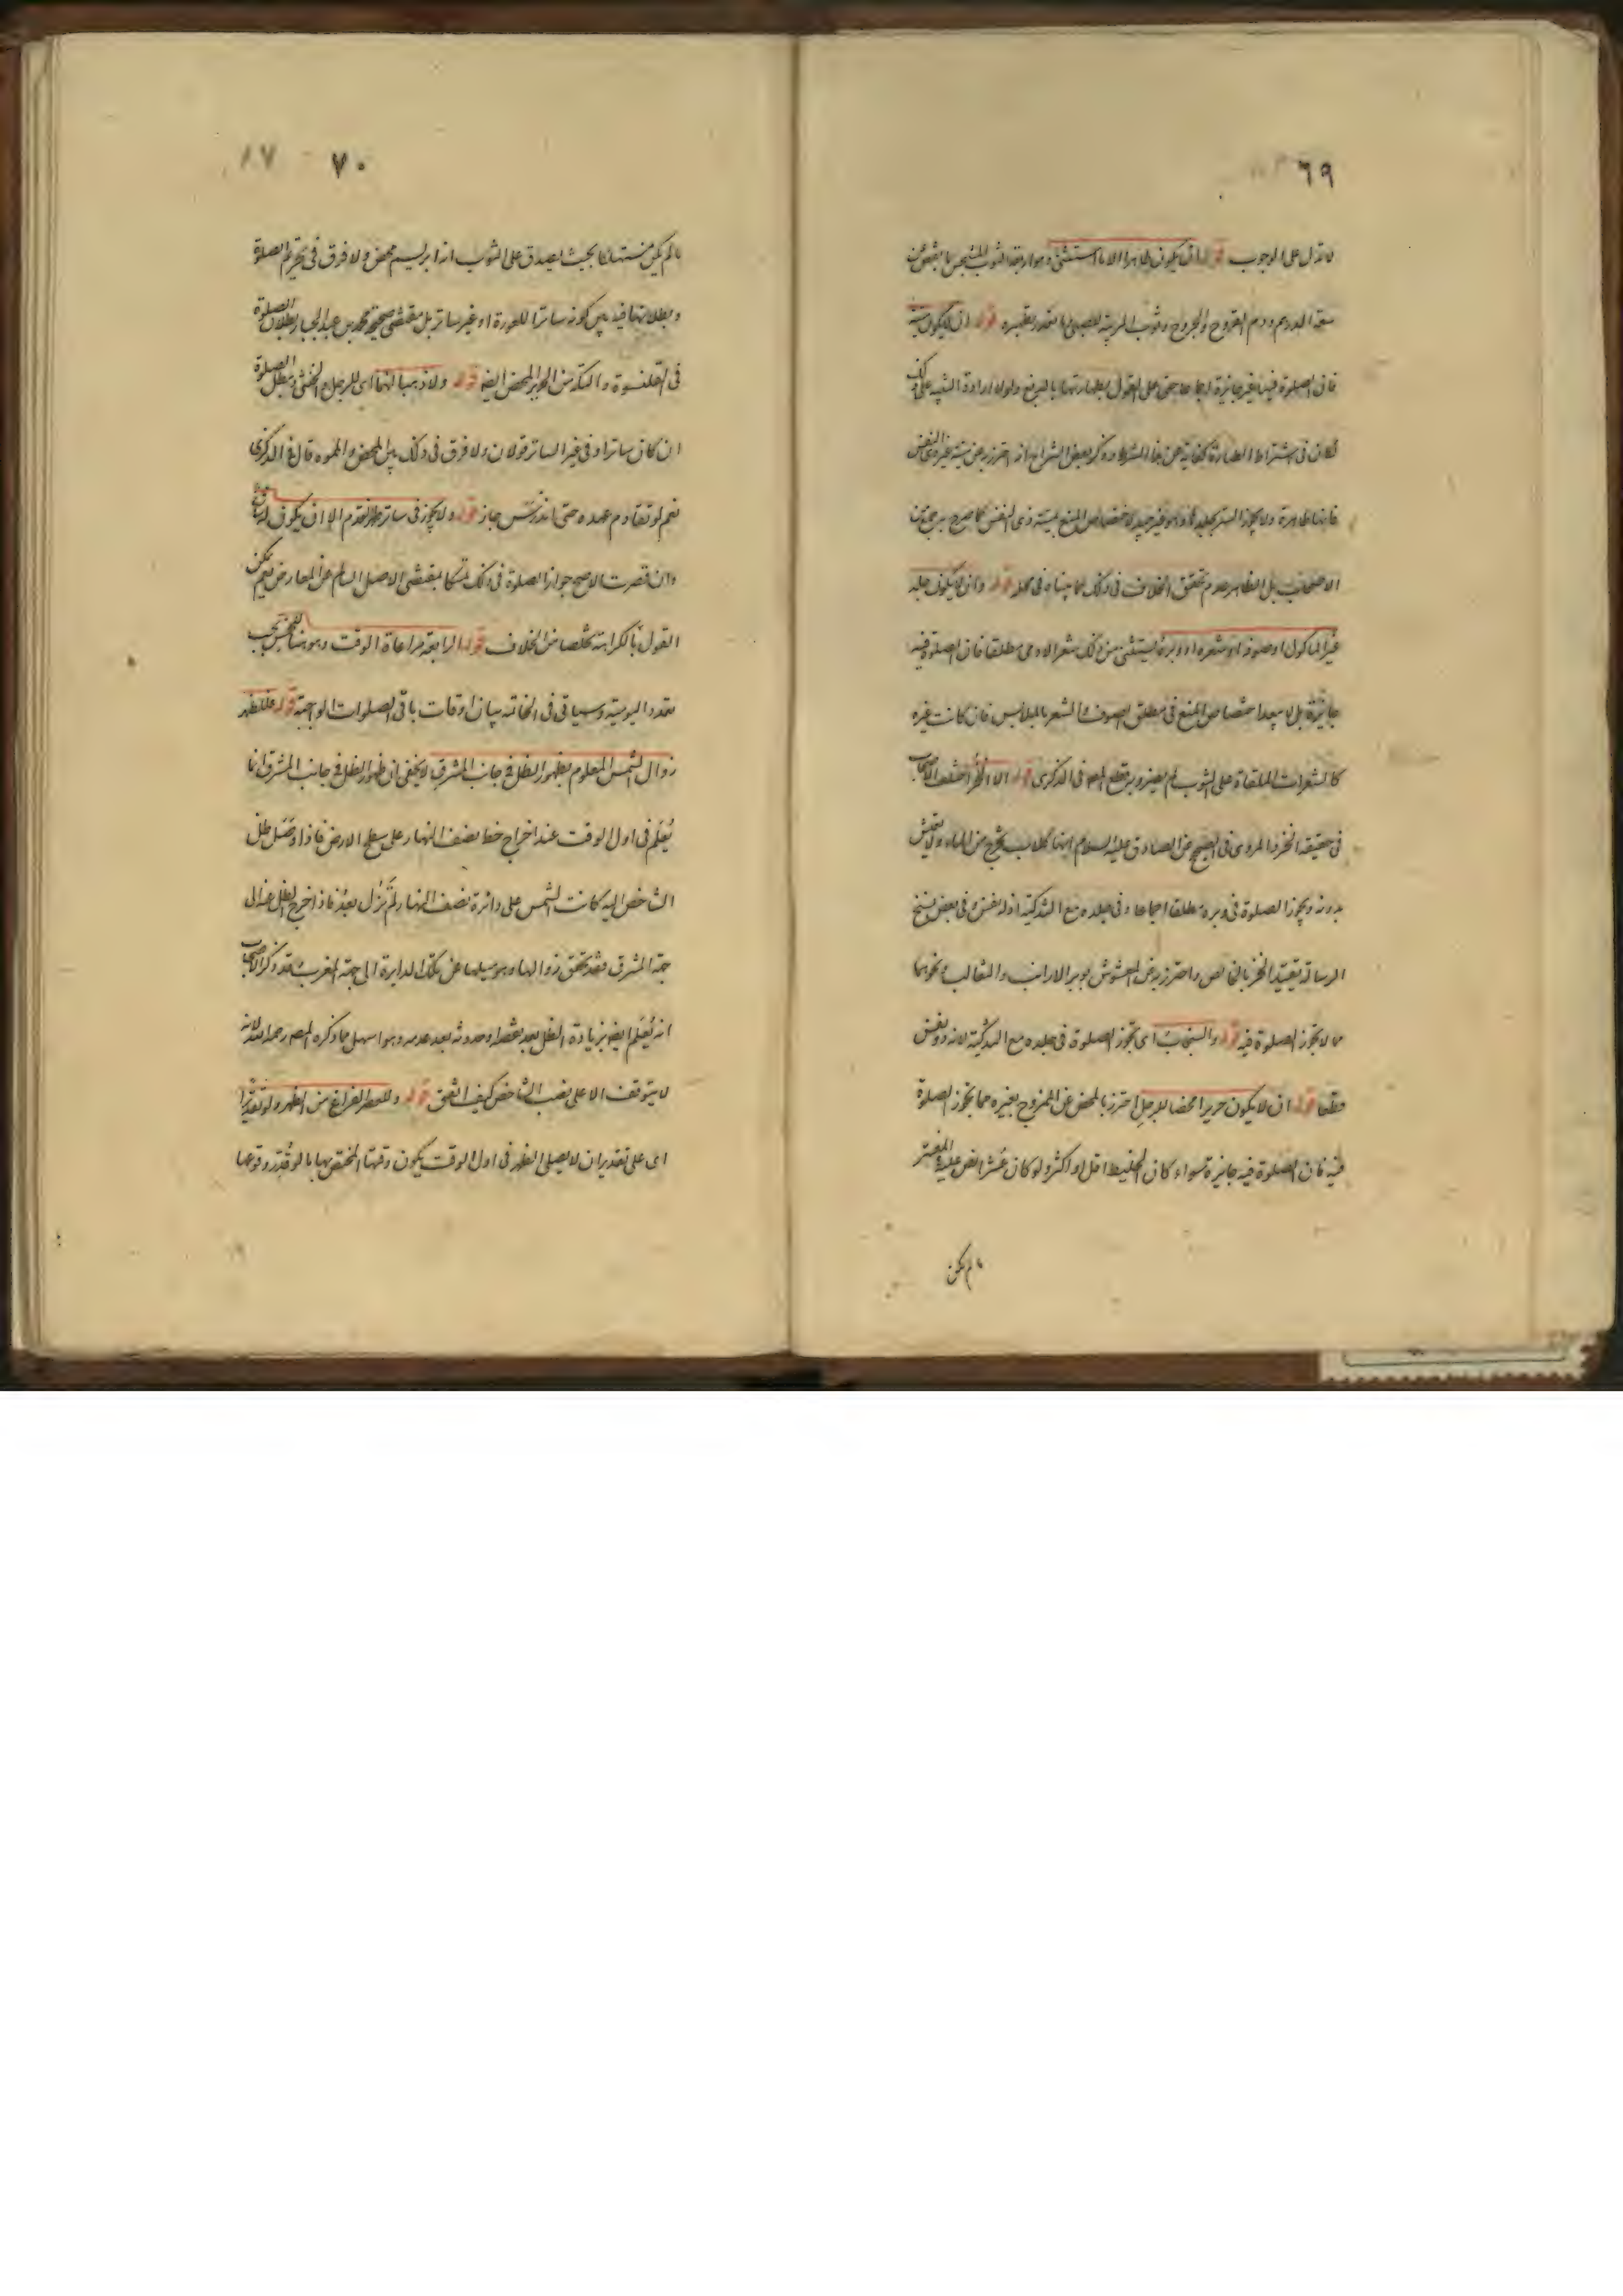 ٦٩
لا تدل على الوجوب قوله ان يكون طاهرا الا ما استثنى وهو اربعة الثوب المتنجس بما ينقص عن
سعة الدرهم ودم القروح والجروح وثوب المربية للصبي وما تعذر تطهيره قوله ان لا يكون ميتة
فان الصلوة فيها غير جايزة اجماعا حتى على القول بطهارتها بالدبغ ولولا ارادة التنبيه على ذلك
لكان في اشتراط الطهارة كفاية عن هذا الشرط وذكر بعض الشراح انه احترز به عن ميتة غير ذي النفس
فانها طاهرة ولا يجوز الستر بجلدها وهو غير جيد لاختصاص المنع بميتة ذي النفس كما صرح به جمع من
الاصحاب بل الظاهر عدم تحقق الخلاف في ذلك كما بيناه في محله قوله وان لا يكون جلد
غير الماكول او صوفه او شعره او وبره يستثنى من ذلك شعر الادمي مطلقا فان الصلوة فيه
جايزة بل لا يبعد اختصاص المنع في مطلق الصوف والشعر بالملابس فان كانت غيره
كالشعرات الملقاة على الثوب لم يضر وبه قطع المصـ في الذكرى قوله الا الخز اختلف الاصحاب
في حقيقة الخز والمروي في الصحيح عن الصادق عليه السلام انها كلاب تخرج من الماء ولا تعيش
بدونه ويجوز الصلوة في وبره مطلقا اجماعا وفي جلده مع التذكية اذ له نفس وفي بعض نسخ
الرسالة تقييد الخز بالخالص واحترز به عن المغشوش بوبر الارانب والثعالب ونحوهما
مما لا يجوز الصلوة فيه قوله والسنجاب اي تجوز الصلوة في جلده مع التذكية لانه ذو نفس
قطعا قوله ان لا يكون حريرا محضا للرجل احترز بالمحض عن الممزوج بغيره مما يجوز الصلوة
فيه فان الصلوة فيه جايزة سواء كان الخليط اقل او اكثر ولو كان عشرا نص عليه المعتبر
ما لم يكن
٧٠
ما لم يكن مستهلكا بحيث يصدق على الثوب انه ابريسم محض ولا فرق في تحريم الصلوة
وبطلانها فيه بين كونه ساترا للعورة او غير ساتر بل مقتضى صحيحة محمد بن عبد الجبار بطلان الصلوة
في القلنسوة والتكة من الحرير المحض ايضا قوله ولا ذهبا لهما اي للرجل والخنثى وتبطل الصلوة
ان كان ساترا وفي غير الساتر قولان ولا فرق في ذلك بين المحض والمموه قال في الذكرى
نعم لو تقادم عهده حتى اندرس جاز قوله ولا يجوز في ساتر ظهر القدم الا ان يكون له ساق
وان قصرت الاصح جواز الصلوة في ذلك تمسكا بمقتضى الاصل السالم عن المعارض نعم يمكن
القول بالكراهة تخلصا من الخلاف قوله الرابعة مراعاة الوقت وهو هنا خمس بحسب
تعدد اليومية وسياتي في الخاتمة بيان اوقات باقي الصلوات الواجبة قوله فللظهر
زوال الشمس المعلوم بظهور الظل في جانب المشرق لا يخفى ان ظهور الظل في جانب المشرق انما
يُعلم في اول الوقت عند اخراج خط نصف النهار على سطح الارض فاذا وصل ظل
الشاخص اليه كانت الشمس على دائرة نصف النهار لم تزل بعد فاذا خرج الظل عنه الى
جهة المشرق فقد تحقق زوالها وهو ميلها عن تلك الدايرة الى جهة المغرب وقد ذكر الاصحاب
انه يُعلم ايضا بزيادة الظل بعد نقصه او حدوثه بعد عدمه وهو اسهل مما ذكره المصـ رحمه الله لانه
لا يتوقف الا على نصب الشاخص كيف اتفق قوله وللعصر الفراغ من الظهر ولو تقديرا
اي على تقدير ان لا يصلي الظهر في اول الوقت يكون وقتها المختص بها ما لو قدّر وقوعها